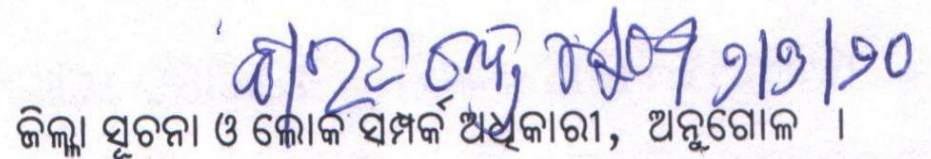 ୨/୬/୨୦
ଜିଲ୍ଲା ସୂଚନା ଓ ଲୋକ ସମ୍ପର୍କ ଅଧିକାରୀ, ଅନୁଗୋଳ ।